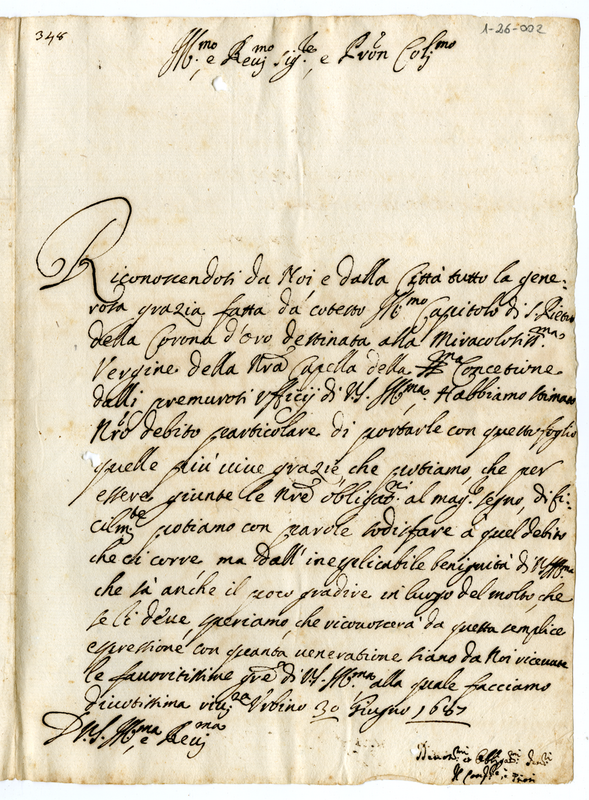 348
1-26-002
Ill.mo e Rev.mo Sig.re e Pron Col.mo
Riconoscendosi da Noi e dalla Città tutto la gene:
rosa grazia fatta da cotesto Ill.mo Capitolo di S. Pietro
della Corona d'oro destinata alla Miracolosiss.ma
Vergine della Nra Capella della SS.ma Concetione
dalli premurosi Ufficij di V.S. Ill.ma. Habbiamo stimato
Nrō debito particolare di portarle con questo foglio
quelle più uiue grazie che potiamo, che per
essere giunte le Nrē obligaz.ni al mag.r segno, difi:
cilm.te potiamo con parole sodisfare à quel debito
che ci corre ma dall' inesplicabile benignità di V.S. Ill.ma
che sà anche il poco gradire in luogo del molto che
se li deue, speriamo, che riconoscerà da questa semplice
espressione con quanta ueneratione siano da Noi riceuute
le fauoritissime gre di V.S. Ill.ma alla quale facciamo
diuotissima riu.za Urbino 30 Giugno 1687
D V.S. Ill.ma e Reu.ma
Il Conf.re e Priori